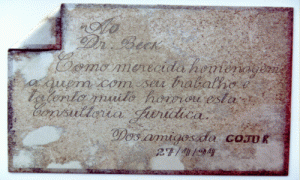 Ao
Dr. Beck
Como merecida homenagem
a quem com seu trabalho e
talento muito honrou esta
Consultoria Jurídica.
Dos amigos da COJUR
27/9/94